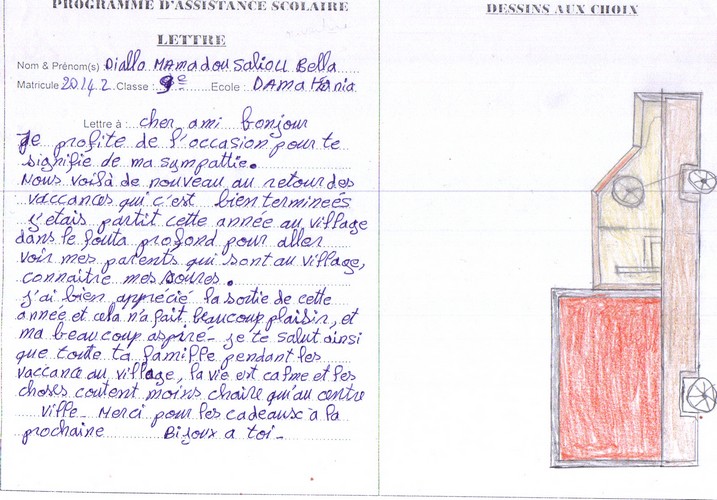 PROGRAMME D'ASSISTANCE SCOLAIRE
LETTRE
Nom & Prénom(s) : Diallo MAMAdou Saliou Bella
Matricule 2014.2 Classe : 9e Ecole : DAMAKania
Lettre à : cher ami bonjour
Je profite de l'occasion pour te
signifie de ma sympattie.
Nous voilà de nouveau au retour des
vaccances qui c'est bien terminées
j'étais partit cette année au village
dans le fouta profond pour aller
voir mes parents qui sont au village,
connaitre mes soures.
j'ai bien apprécié la sortie de cette
année et cela n'a fait beaucoup plaisir, et
ma beaucoup aspiré - je te salut ainsi
que toute ta famille pendant les
vaccance au village, la vie est calme et les
choses coutent moins chaire qu'au centre
ville - Merci pour les cadeaux a la
prochaine Bijoux a toi -
DESSINS AUX CHOIX